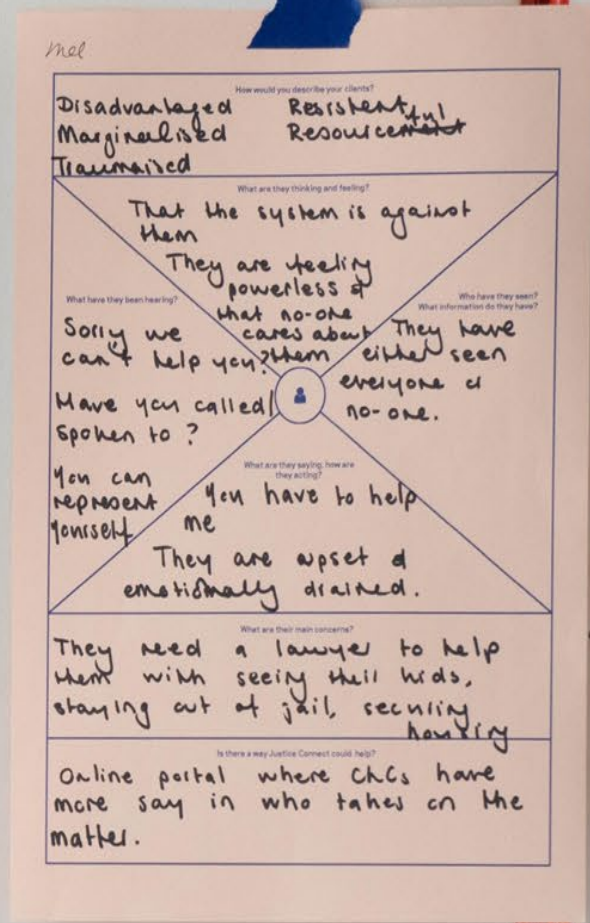 mel
How would you describe your clients?
Disadvantaged
Marginalised
Traumaised
Resistent
Resourceful
What are they thinking and feeling?
That the system is against
them
They are feeling
powerless &
that no-one
cares about
them
What have they been hearing?
Sorry we
can't help you?
Have you called/
spoken to?
You can
represent
yourself
Who have they seen?
What information do they have?
They have
either seen
everyone or
no-one.
What are they saying, how are
they acting?
You have to help
me
They are upset &
emotionally drained.
What are their main concerns?
They need a lawyer to help
them with seeing their kids,
staying out of jail, securing
housing
Is there a way Justice Connect could help?
Online portal where CLCs have
more say in who takes on the
matter.